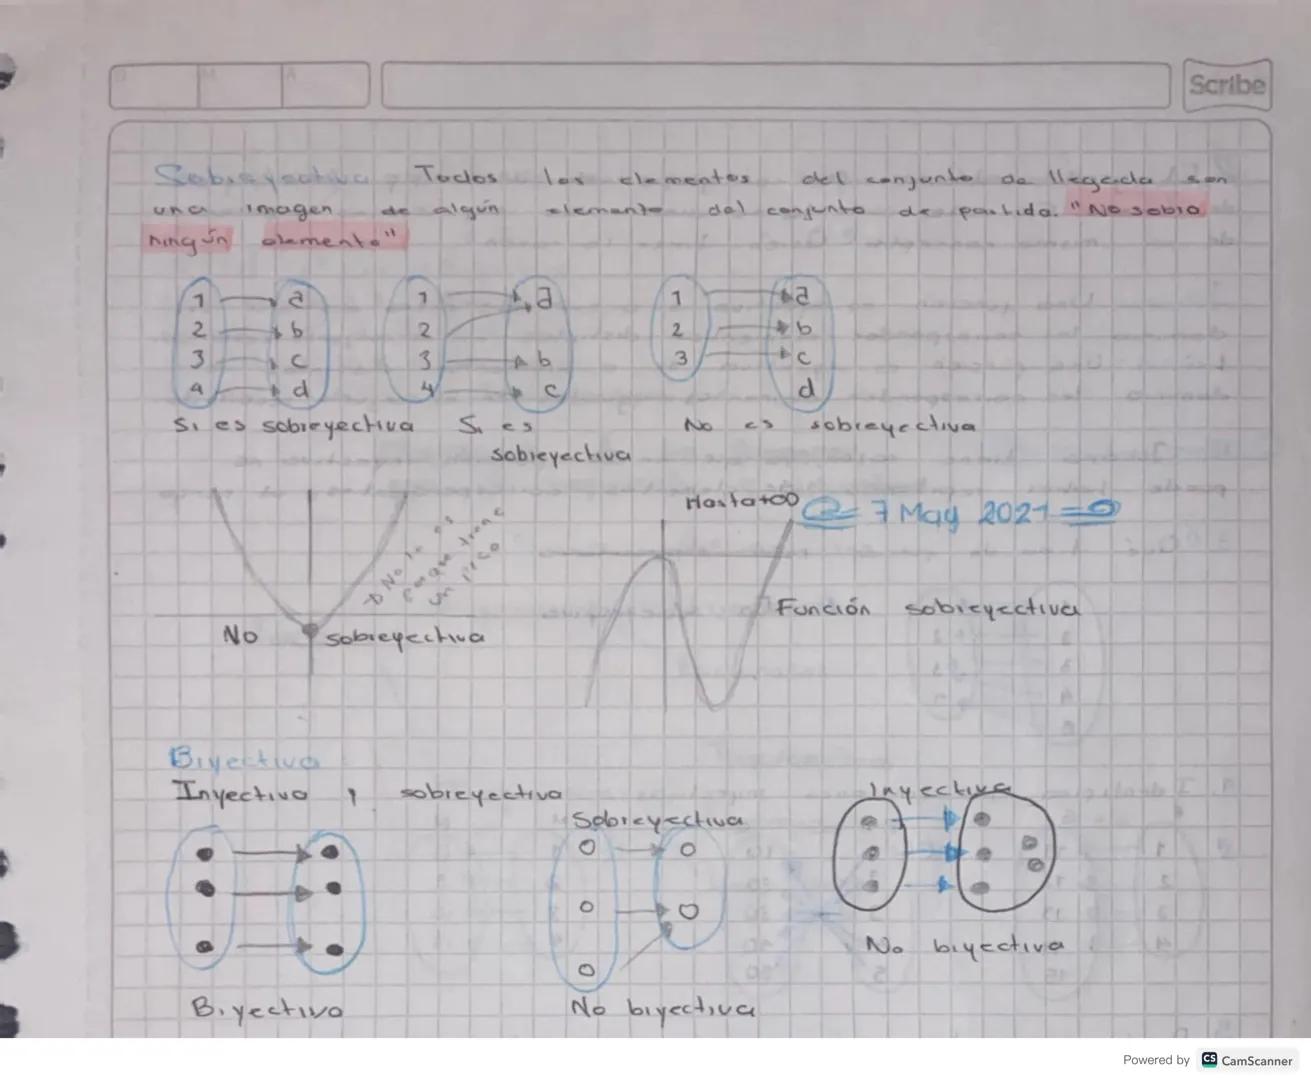 Scribe
Sobreyectiva Todos los elementos del conjunto de llegada son
una imagen de algún elemento del conjunto de partida. "No sobro
ningún elemento"
1 a 1 a 1 a
2 b 2 2 b
3 c 3 b 3 c
4 d 4 c d
Si es sobreyectiva Si es No es sobreyectiva
sobreyectiva
Hasta +∞ 7 May 2021
No lo es
porque tiene
un pico
Función sobreyectiva
No sobreyectiva
Biyectiva
Inyectiva y sobreyectiva Inyectiva
Sobreyectiva
No biyectiva
Biyectiva No biyectiva
Powered by CS CamScanner